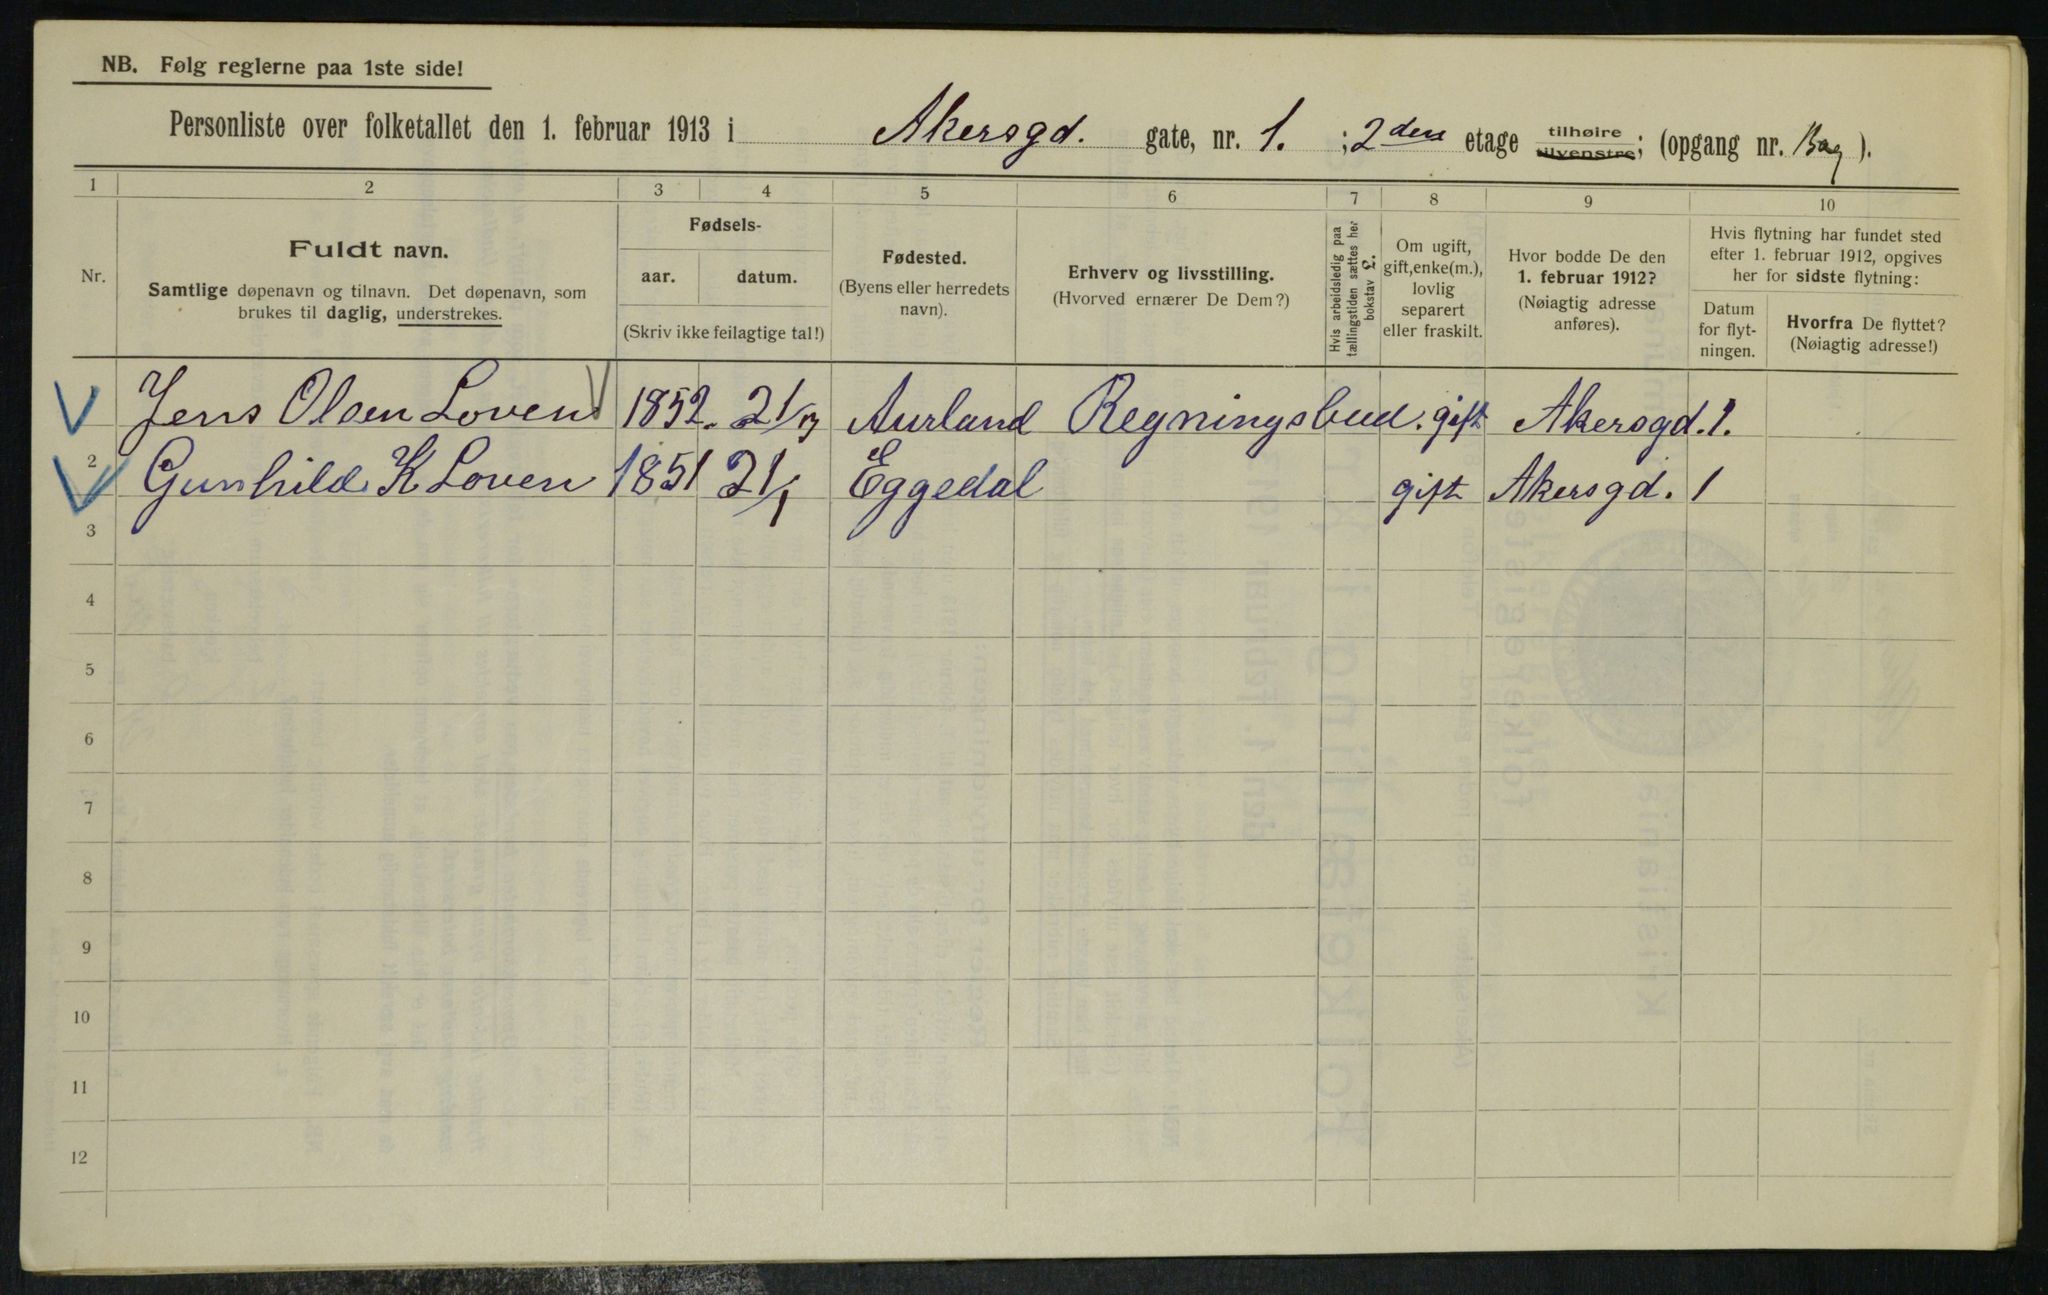 NB. Følg reglerne paa 1ste side!
Personliste over folketallet den 1. februar 1913 i Akersgd. gate, nr. 1. ; 2den etage tilhøire tilvenstre; (opgang nr. Bag ).
1 2 3 4 5 6 7 8 9 10
Nr.
Fuldt navn.
Samtlige døpenavn og tilnavn. Det døpenavn, som
brukes til daglig, understrekes.
Fødsels-
aar. datum.
(Skriv ikke feilagtige tal!)
Fødested.
(Byens eller herredets
navn).
Erhverv og livsstilling.
(Hvorved ernærer De Dem?)
Hvis arbeidsledig paa
tællingstiden sættes her
bokstav L.
Om ugift,
gift, enke(m.),
lovlig
separert
eller fraskilt.
Hvor bodde De den
1. februar 1912?
(Nøiagtig adresse
anføres).
Hvis flytning har fundet sted
efter 1. februar 1912, opgives
her for sidste flytning:
Datum
for flyt-
ningen.
Hvorfra De flyttet?
(Nøiagtig adresse!)
Jens Olsen Loven 1852. 21/ Aurland Regningsbud. gift Akersgd. 1.
2 Gunhild K Loven 1851 21/1 Eggedal gift Akersgd. 1
3
4
5
6
7
8
9
10
11
12